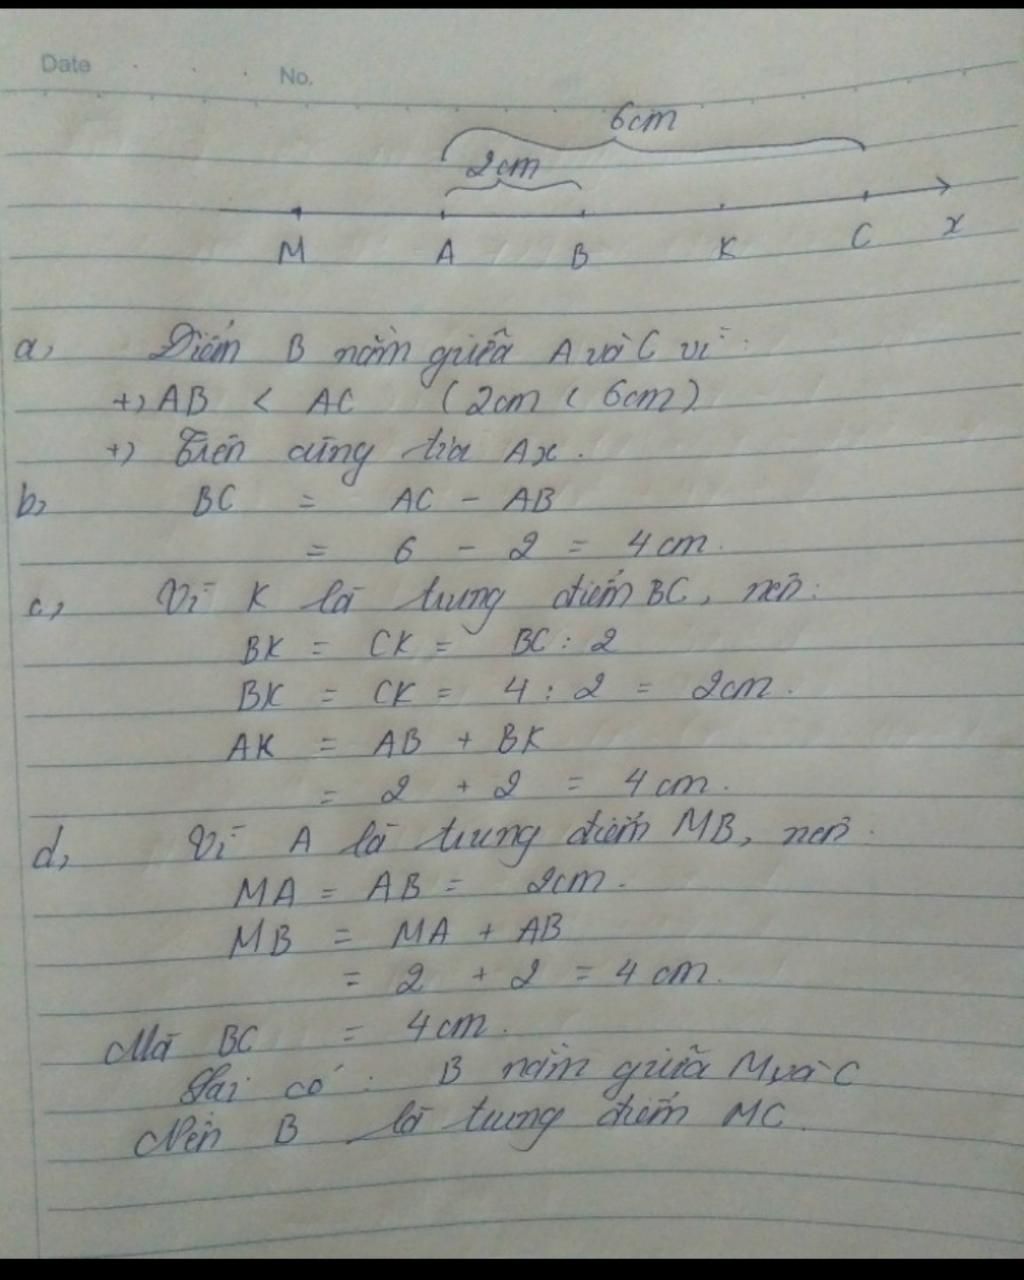 Date
No.
6cm
2cm
M A B K C x
a, Điểm B nằm giữa A và C vì:
+) AB < AC (2cm < 6cm)
+) Trên cùng tia Ax.
b, BC = AC - AB
= 6 - 2 = 4cm.
c, Vì K là trung điểm BC, nên:
BK = CK = BC : 2
BK = CK = 4 : 2 = 2cm.
AK = AB + BK
= 2 + 2 = 4cm.
d, Vì A là trung điểm MB, nên:
MA = AB = 2cm.
MB = MA + AB
= 2 + 2 = 4cm.
Mà BC = 4cm.
Lại có: B nằm giữa M và C
Nên B là trung điểm MC.